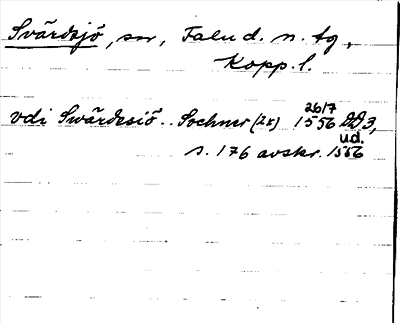 Svärdsjö, sn, Falu d. n. tg,
Kopp. l.
vdi Swärdesiö.. Sochner (2x) 26/7 1556 DD3,
s. 176 avskr. ud. 1566